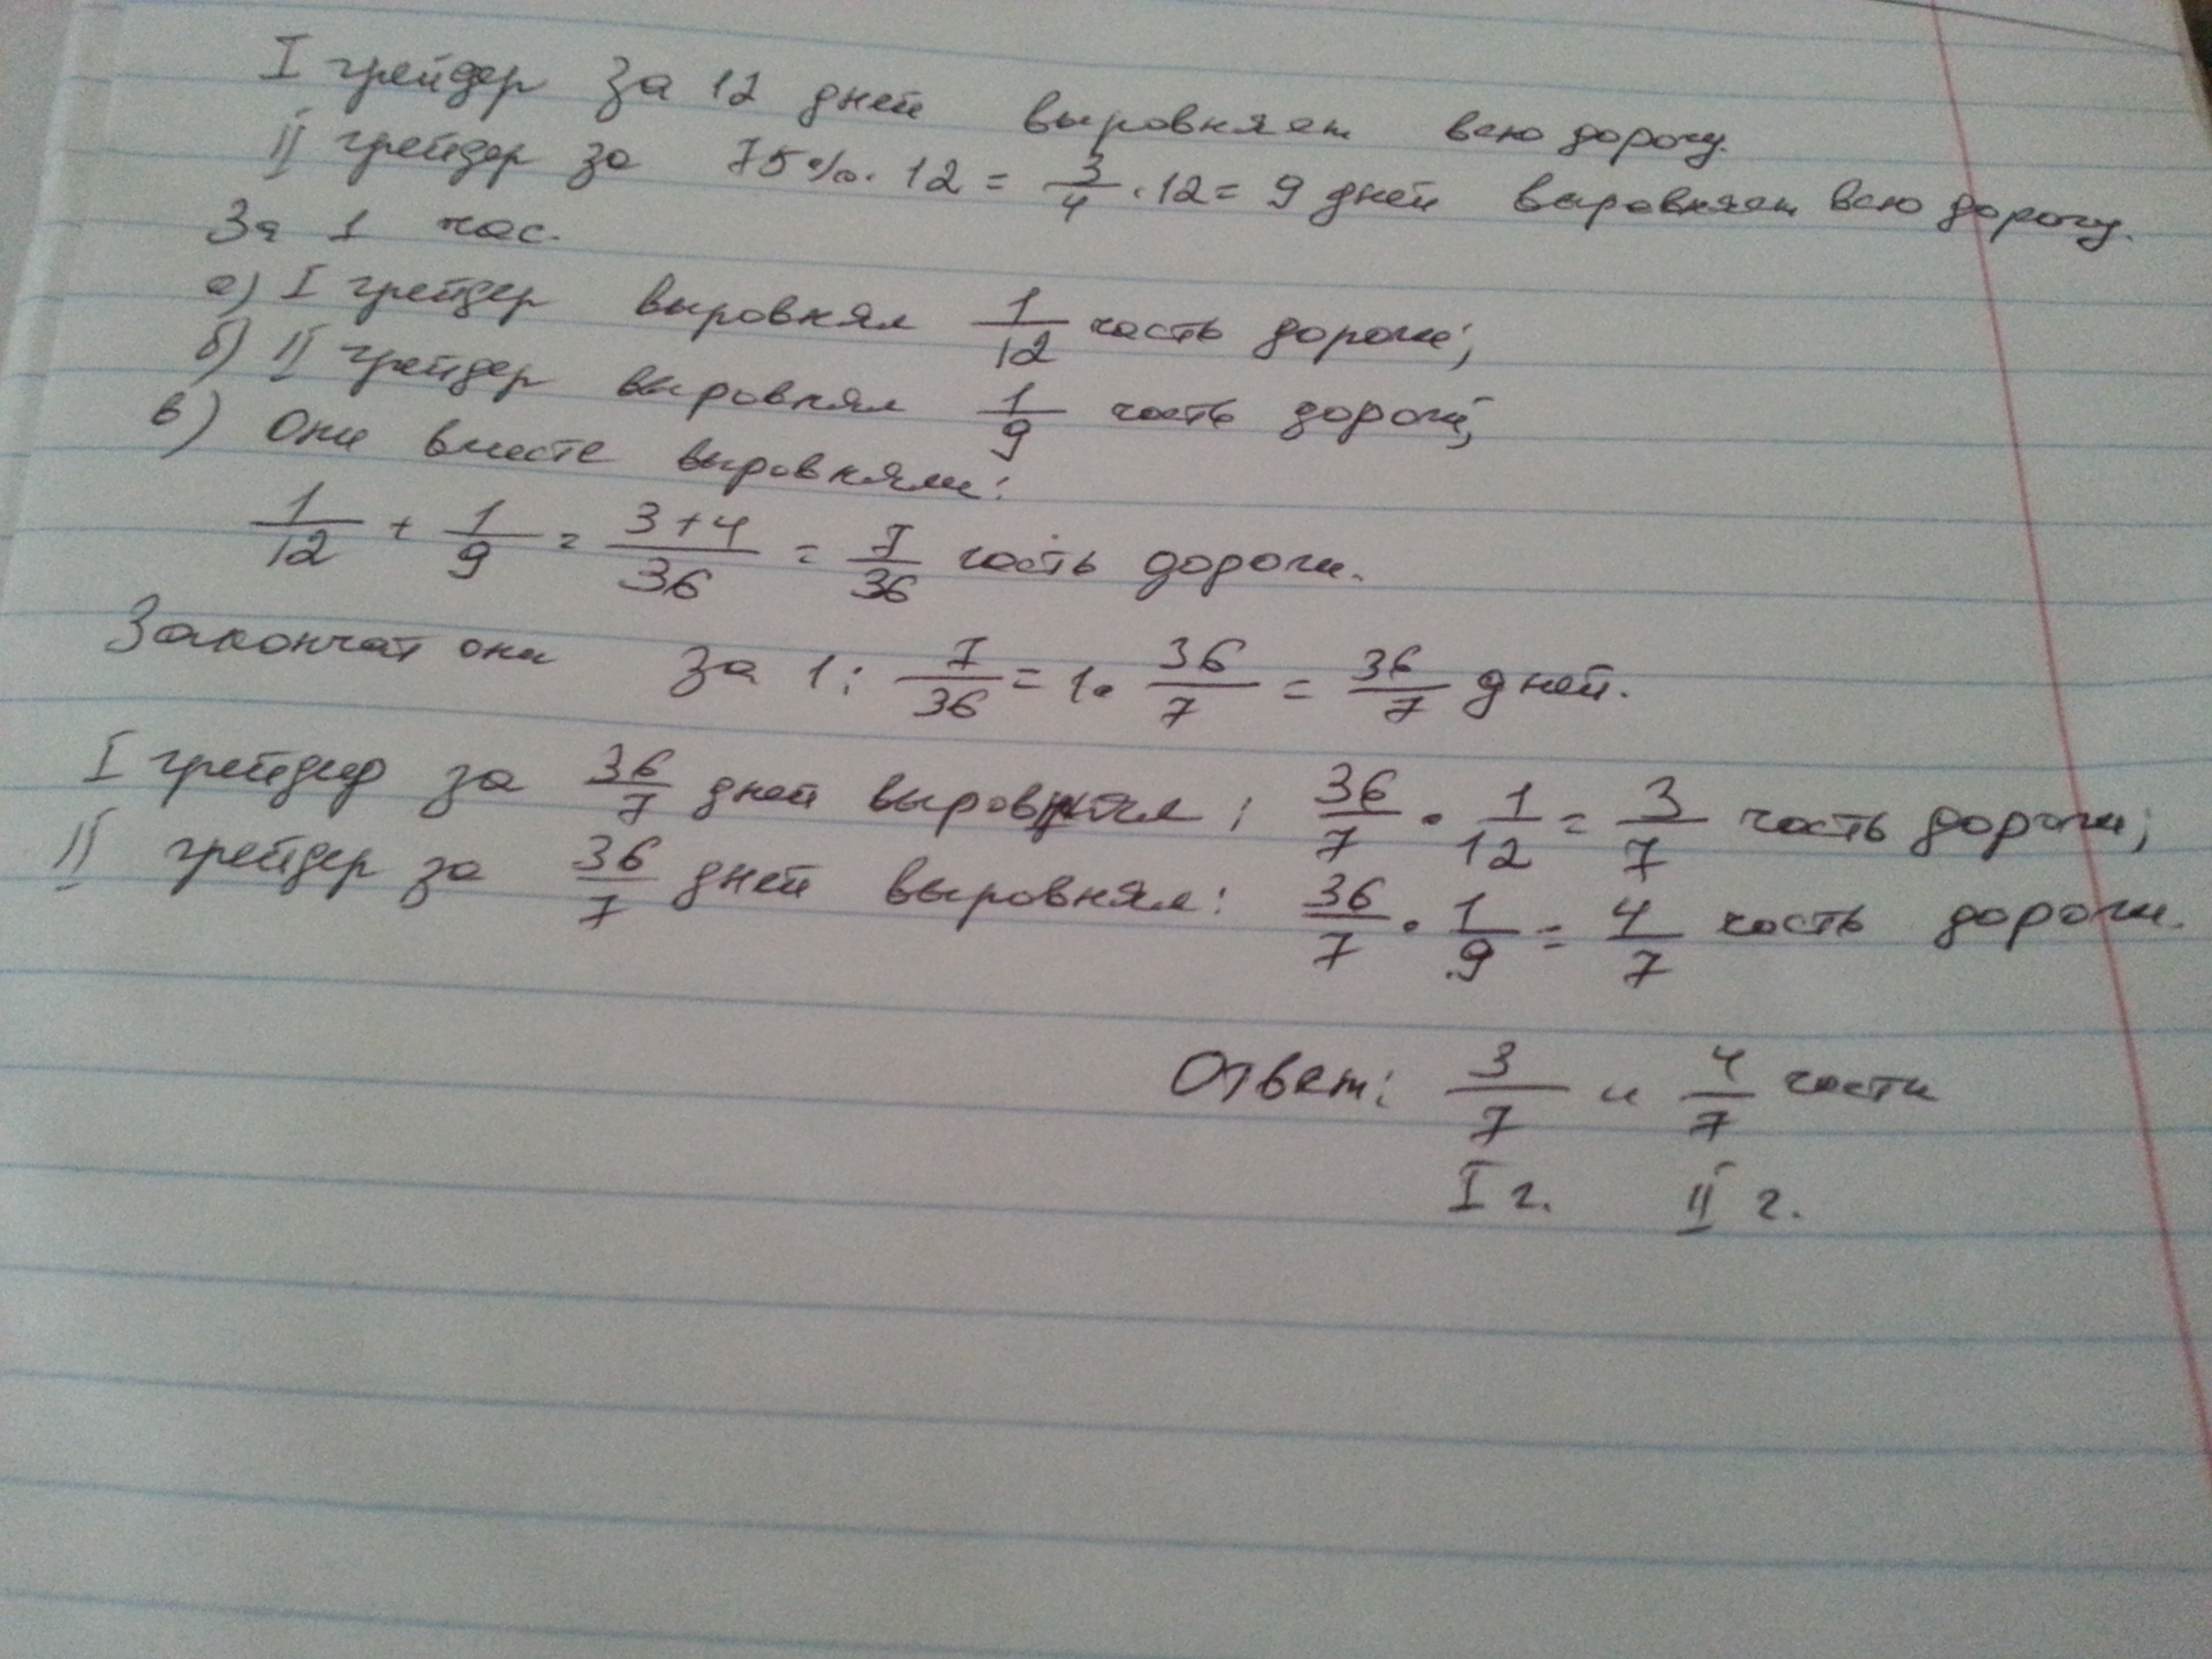 I грейдер за 12 дней выровняет всю дорогу.
II грейдер за 75% · 12 = 3/4 · 12 = 9 дней выровняет всю дорогу.
За 1 час.
а) I грейдер выровнял 1/12 часть дороги;
б) II грейдер выровнял 1/9 часть дороги;
в) Они вместе выровняли:
1/12 + 1/9 = 3+4/36 = 7/36 часть дороги.
Закончат они за 1 : 7/36 = 1 · 36/7 = 36/7 дней.
I грейдер за 36/7 дней выровнял : 36/7 · 1/12 = 3/7 часть дороги;
II грейдер за 36/7 дней выровнял: 36/7 · 1/9 = 4/7 часть дороги.
Ответ: 3/7 и 4/7 части
I г. II г.